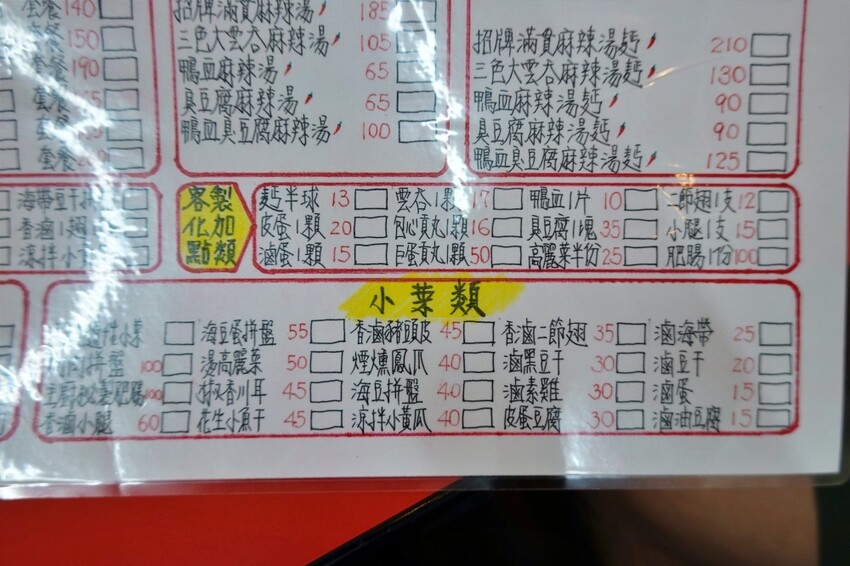 套餐 140
套餐 150
套餐 190
套餐
套餐
套餐
招牌滿貫麻辣湯 185
三色大雲吞麻辣湯 105
鴨血麻辣湯 65
臭豆腐麻辣湯 65
鴨血臭豆腐麻辣湯 100
招牌滿貫麻辣湯麵 210
三色大雲吞麻辣湯麵 130
鴨血麻辣湯麵 90
臭豆腐麻辣湯麵 90
鴨血臭豆腐麻辣湯麵 125
海帶豆干拼
香滷1翅
涼拌小
客製
化加
點類
麵半球 13 雲吞1顆 17 鴨血1片 10 二節翅1支 12
皮蛋1顆 20 包心貢丸1顆 16 臭豆腐1塊 35 小腿1支 15
滷蛋1顆 15 巨蛋貢丸1顆 50 高麗菜半份 25 肥腸1份 100
小菜類
海豆蛋拼盤 55 香滷豬頭皮 45 香滷二節翅 35 滷海帶 25
拼盤 100 湯高麗菜 50 煙燻鳳爪 40 滷黑豆干 30 滷豆干 20
肥腸 100 椒香川耳 45 海豆拼盤 40 滷素雞 30 滷蛋 15
香滷小腿 60 花生小魚干 45 涼拌小黃瓜 40 皮蛋豆腐 30 滷油豆腐 15